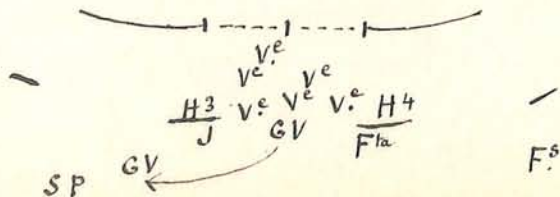 V.e
Ve Ve
H3 V.e Ve V.e H4
J GV Fta
GV F.s
SP